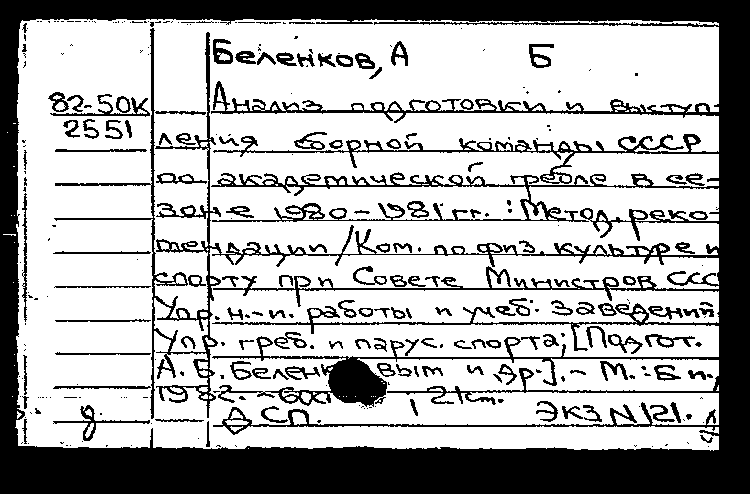 Беленков, А Б
82-50К Анализ подготовки и выступ-
2551 ления сборной команды СССР
по академической гребле в се-
зоне 1980-1981 гг. : Метод. реко-
мендации / Ком. по физ. культуре и
спорту при Совете Министров ССС
Упр. н.-и. работы и учеб. заведений.
Упр. греб. и парус. спорта; [Подгот.
А. Б. Беленк вым и др.]. - М. : Б и.,
1982. ; 21 см.
д ДСП. Экз N 121.